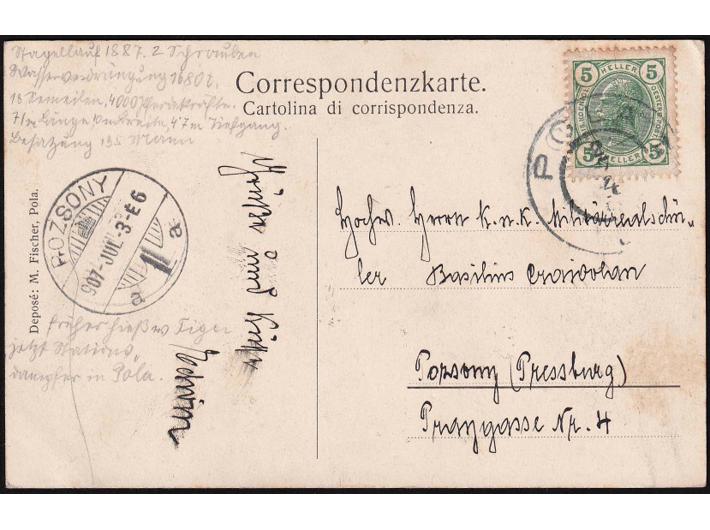 Stapellauf 1887. 2 Schrauben
Wasserverdrängung 1680 t,
18 Seemeilen, 4000 Pferdekräfte.
7 m Länge, Breite, 4.7 m Tiefgang.
Besatzung 135 Mann
Correspondenzkarte.
Cartolina di corrispondenza.
5 HELLER 5
5 HELLER 5
POLA
POZSONY
907-JUL-3-É6
a a
Deposé: M. Fischer, Pola.
früher hieß es Tiger
jetzt Stations-
dampfer in Pola.
und
Hochw. Herrn k. u. k. Militärrealschü-
ler Basilius
Popsony (Pressburg)
Praygasse Nr. 4